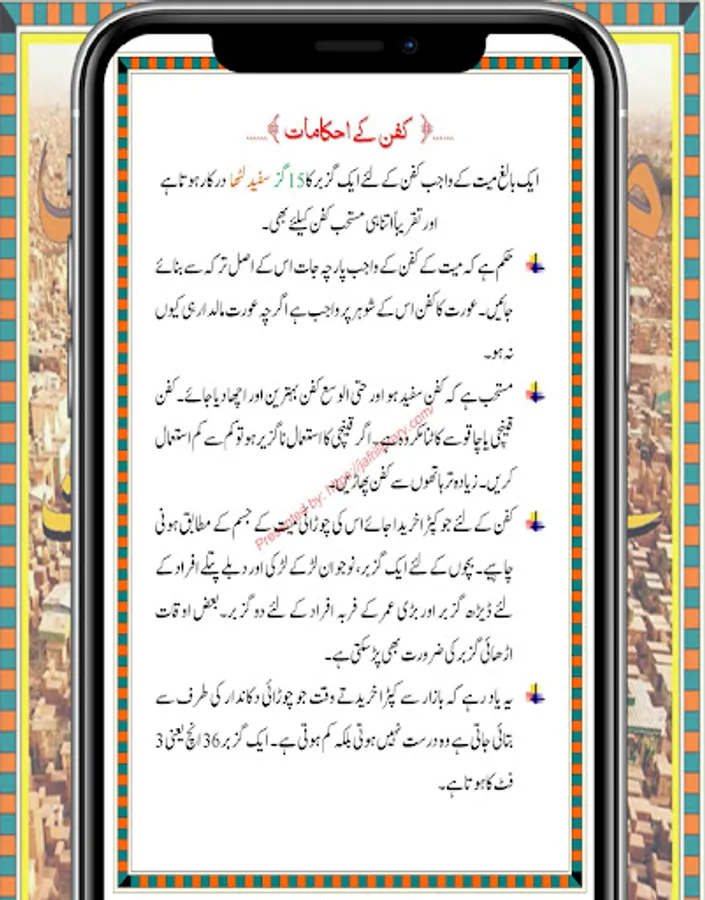 ......﴿ کفن کے احکامات ﴾......
ایک بالغ میت کے واجب کفن کے لئے ایک گز برکا 15 گز سفید لٹھا درکار ہوتا ہے
اور تقریباً اتنا ہی مستحب کفن کیلئے بھی۔
حکم ہے کہ میت کے کفن کے واجب پارچہ جات اس کے اصل ترکہ سے بنائے
جائیں۔ عورت کا کفن اس کے شوہر پر واجب ہے اگرچہ عورت مالدار ہی کیوں
نہ ہو۔
مستحب ہے کہ کفن سفید ہو اور حتی الوسع کفن بہترین اور اچھا دیا جائے۔ کفن
قینچی یا چاقو سے کاٹنا مکروہ ہے۔ اگر قینچی کا استعمال ناگزیر ہو تو کم سے کم استعمال
کریں۔ زیادہ تر ہاتھوں سے کفن پھاڑیں۔
کفن کے لئے جو کپڑا خریدا جائے اس کی چوڑائی میت کے جسم کے مطابق ہونی
چاہیے۔ بچوں کے لئے ایک گز بر، نوجوان لڑکے لڑکی اور دبلے پتلے افراد کے
لئے ڈیڑھ گز بر اور بڑی عمر کے فربہ افراد کے لئے دو گز بر۔ بعض اوقات
اڑھائی گز بر کی ضرورت بھی پڑسکتی ہے۔
یہ یاد رہے کہ بازار سے کپڑا خریدتے وقت جو چوڑائی دکاندار کی طرف سے
بتائی جاتی ہے وہ درست نہیں ہوتی بلکہ کم ہوتی ہے۔ ایک گز بر 36 انچ یعنی 3
فٹ کا ہوتا ہے۔
Presented by: https://jafrilibrary.com/